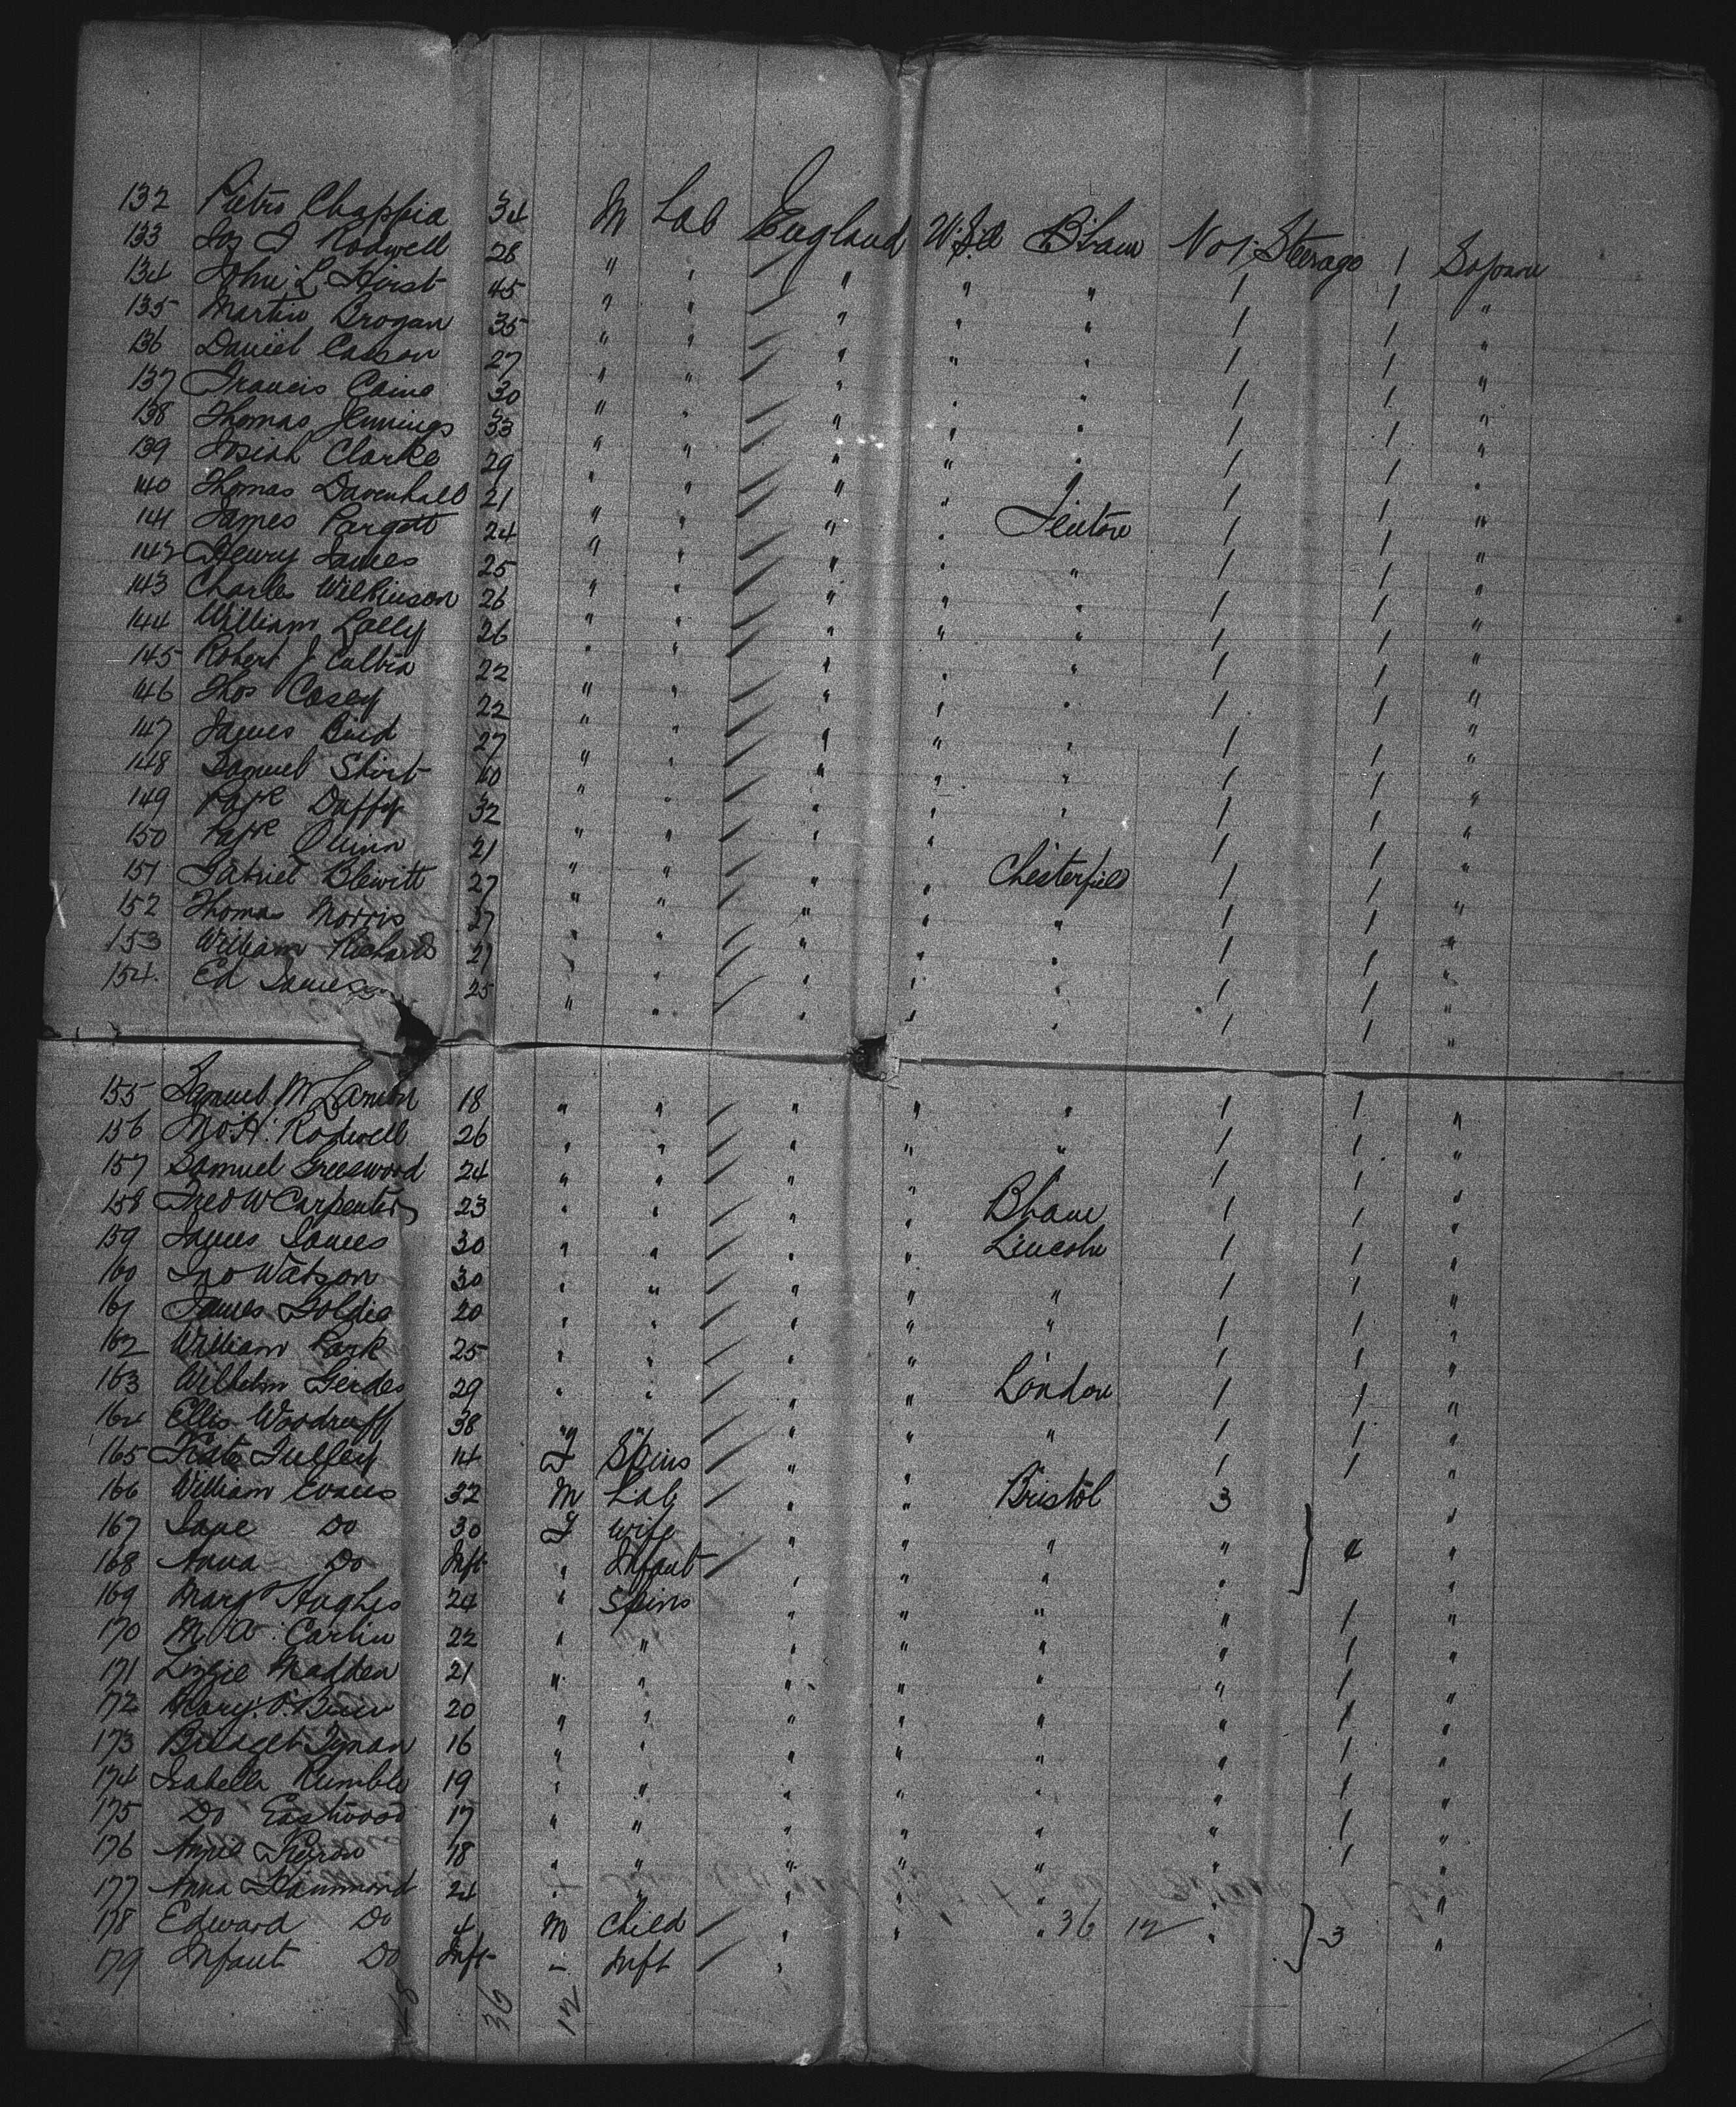 132 Pietro Chappia 34 M Lab England U.S.A B'ham No 1 Steerage 1 Sojourn
133 Jas J Rodwell 28 " " " " " 1 1 "
134 John L Hirst 45 " " " " " 1 1 "
135 Martin Brogan 35 " " " " " 1 1 "
136 Daniel Casson 27 " " " " " 1 1 "
137 Francis Caine 30 " " " " " 1 1 "
138 Thomas Jennings 33 " " " " " 1 1 "
139 Josiah Clarke 29 " " " " " 1 1 "
140 Thomas Davenhall 21 " " " " Fenton 1 1 "
141 James Pargett 24 " " " " " 1 1 "
142 Henry James 25 " " " " " 1 1 "
143 Charles Wilkinson 26 " " " " " 1 1 "
144 William Lally 26 " " " " " 1 1 "
145 Robert J 22 " " " " " 1 1 "
146 Thos Casey 22 " " " " " 1 1 "
147 James Bird 27 " " " " " 1 1 "
148 Samuel Shirt 40 " " " " " 1 1 "
149 Patk Duffy 32 " " " " " 1 1 "
150 Patk Quinn 21 " " " " Chesterfield 1 1 "
151 Gabriel Blewitt 27 " " " " " 1 1 "
152 Thomas Morris 27 " " " " " 1 1 "
153 William Richards 21 " " " " " 1 1 "
154 Ed James 25 " " " " " 1 1 "
155 Samuel M 18 " " " " " 1 1 "
156 Jno. H. Rodwell 26 " " " " " 1 1 "
157 Samuel Greenwood 24 " " " " 1 1 "
158 Fred W Carpenter 23 " " " " Bham 1 1 "
159 James James 30 " " " " Lincoln 1 1 "
160 Jno Watson 30 " " " " " 1 1 "
161 James Goldie 20 " " " " " 1 1 "
162 William Park 25 " " " " 1 1 "
163 Wilhelm Gerdes 29 " " " " London 1 1 "
164 Ellis Woodruff 38 " " " " " 1 1 "
165 Kate Tulley 14 F Spins " 1 1 "
166 William Evans 32 M Lab " " Bristol 3 "
167 Jane Do 30 F Wife " " " " } 4 "
168 Anna Do Inft " Infant " " " " "
169 Mary Hughes 24 " Spins " " " " 1 "
170 M. A. Carlin 22 " " " " " " 1 "
171 Lizzie Madden 21 " " " " " " 1 "
172 Mary O'Brien 20 " " " " " " 1 "
173 Bridget Tynan 16 " " " " " " 1 "
174 Isabella Rumble 19 " " " " " " 1 "
175 Do Eastwood 17 " " " " " " 1 "
176 Annie 18 " " " " " " 1 "
177 Anna Hammond 24 " " "
178 Edward Do 4 M Child " " " 36 12 " } 3 "
179 Infant Do Inft " Inft "
48 36 12